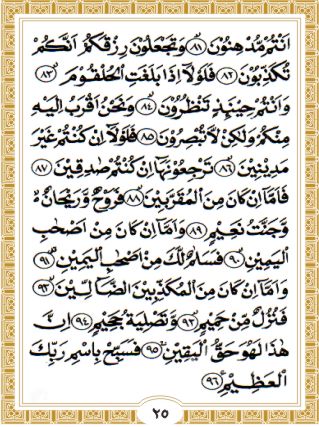 اَنْتُمْ مُّدْهِنُوْنَ ﴿٨١﴾ وَتَجْعَلُوْنَ رِزْقَكُمْ اَنَّكُمْ
تُكَذِّبُوْنَ ﴿٨٢﴾ فَلَوْلَاۤ اِذَا بَلَغَتِ الْحُلْقُوْمَ ﴿٨٣﴾
وَاَنْتُمْ حِيْنَئِذٍ تَنْظُرُوْنَ ﴿٨٤﴾ وَنَحْنُ اَقْرَبُ اِلَيْهِ
مِنْكُمْ وَلٰكِنْ لَّا تُبْصِرُوْنَ ﴿٨٥﴾ فَلَوْلَاۤ اِنْ كُنْتُمْ غَيْرَ
مَدِيْنِيْنَ ﴿٨٦﴾ تَرْجِعُوْنَهَاۤ اِنْ كُنْتُمْ صٰدِقِيْنَ ﴿٨٧﴾
فَاَمَّاۤ اِنْ كَانَ مِنَ الْمُقَرَّبِيْنَ ﴿٨٨﴾ فَرَوْحٌ وَّرَيْحَانٌ ۙ
وَّجَنَّتُ نَعِيْمٍ ﴿٨٩﴾ وَاَمَّاۤ اِنْ كَانَ مِنْ اَصْحٰبِ
الْيَمِيْنِ ﴿٩٠﴾ فَسَلٰمٌ لَّكَ مِنْ اَصْحٰبِ الْيَمِيْنِ ﴿٩١﴾
وَاَمَّاۤ اِنْ كَانَ مِنَ الْمُكَذِّبِيْنَ الضَّآلِّيْنَ ﴿٩٢﴾
فَنُزُلٌ مِّنْ حَمِيْمٍ ﴿٩٣﴾ وَّتَصْلِيَةُ جَحِيْمٍ ﴿٩٤﴾ اِنَّ
هٰذَا لَهُوَ حَقُّ الْيَقِيْنِ ﴿٩٥﴾ فَسَبِّحْ بِاسْمِ رَبِّكَ
الْعَظِيْمِ ﴿٩٦﴾
٢٥